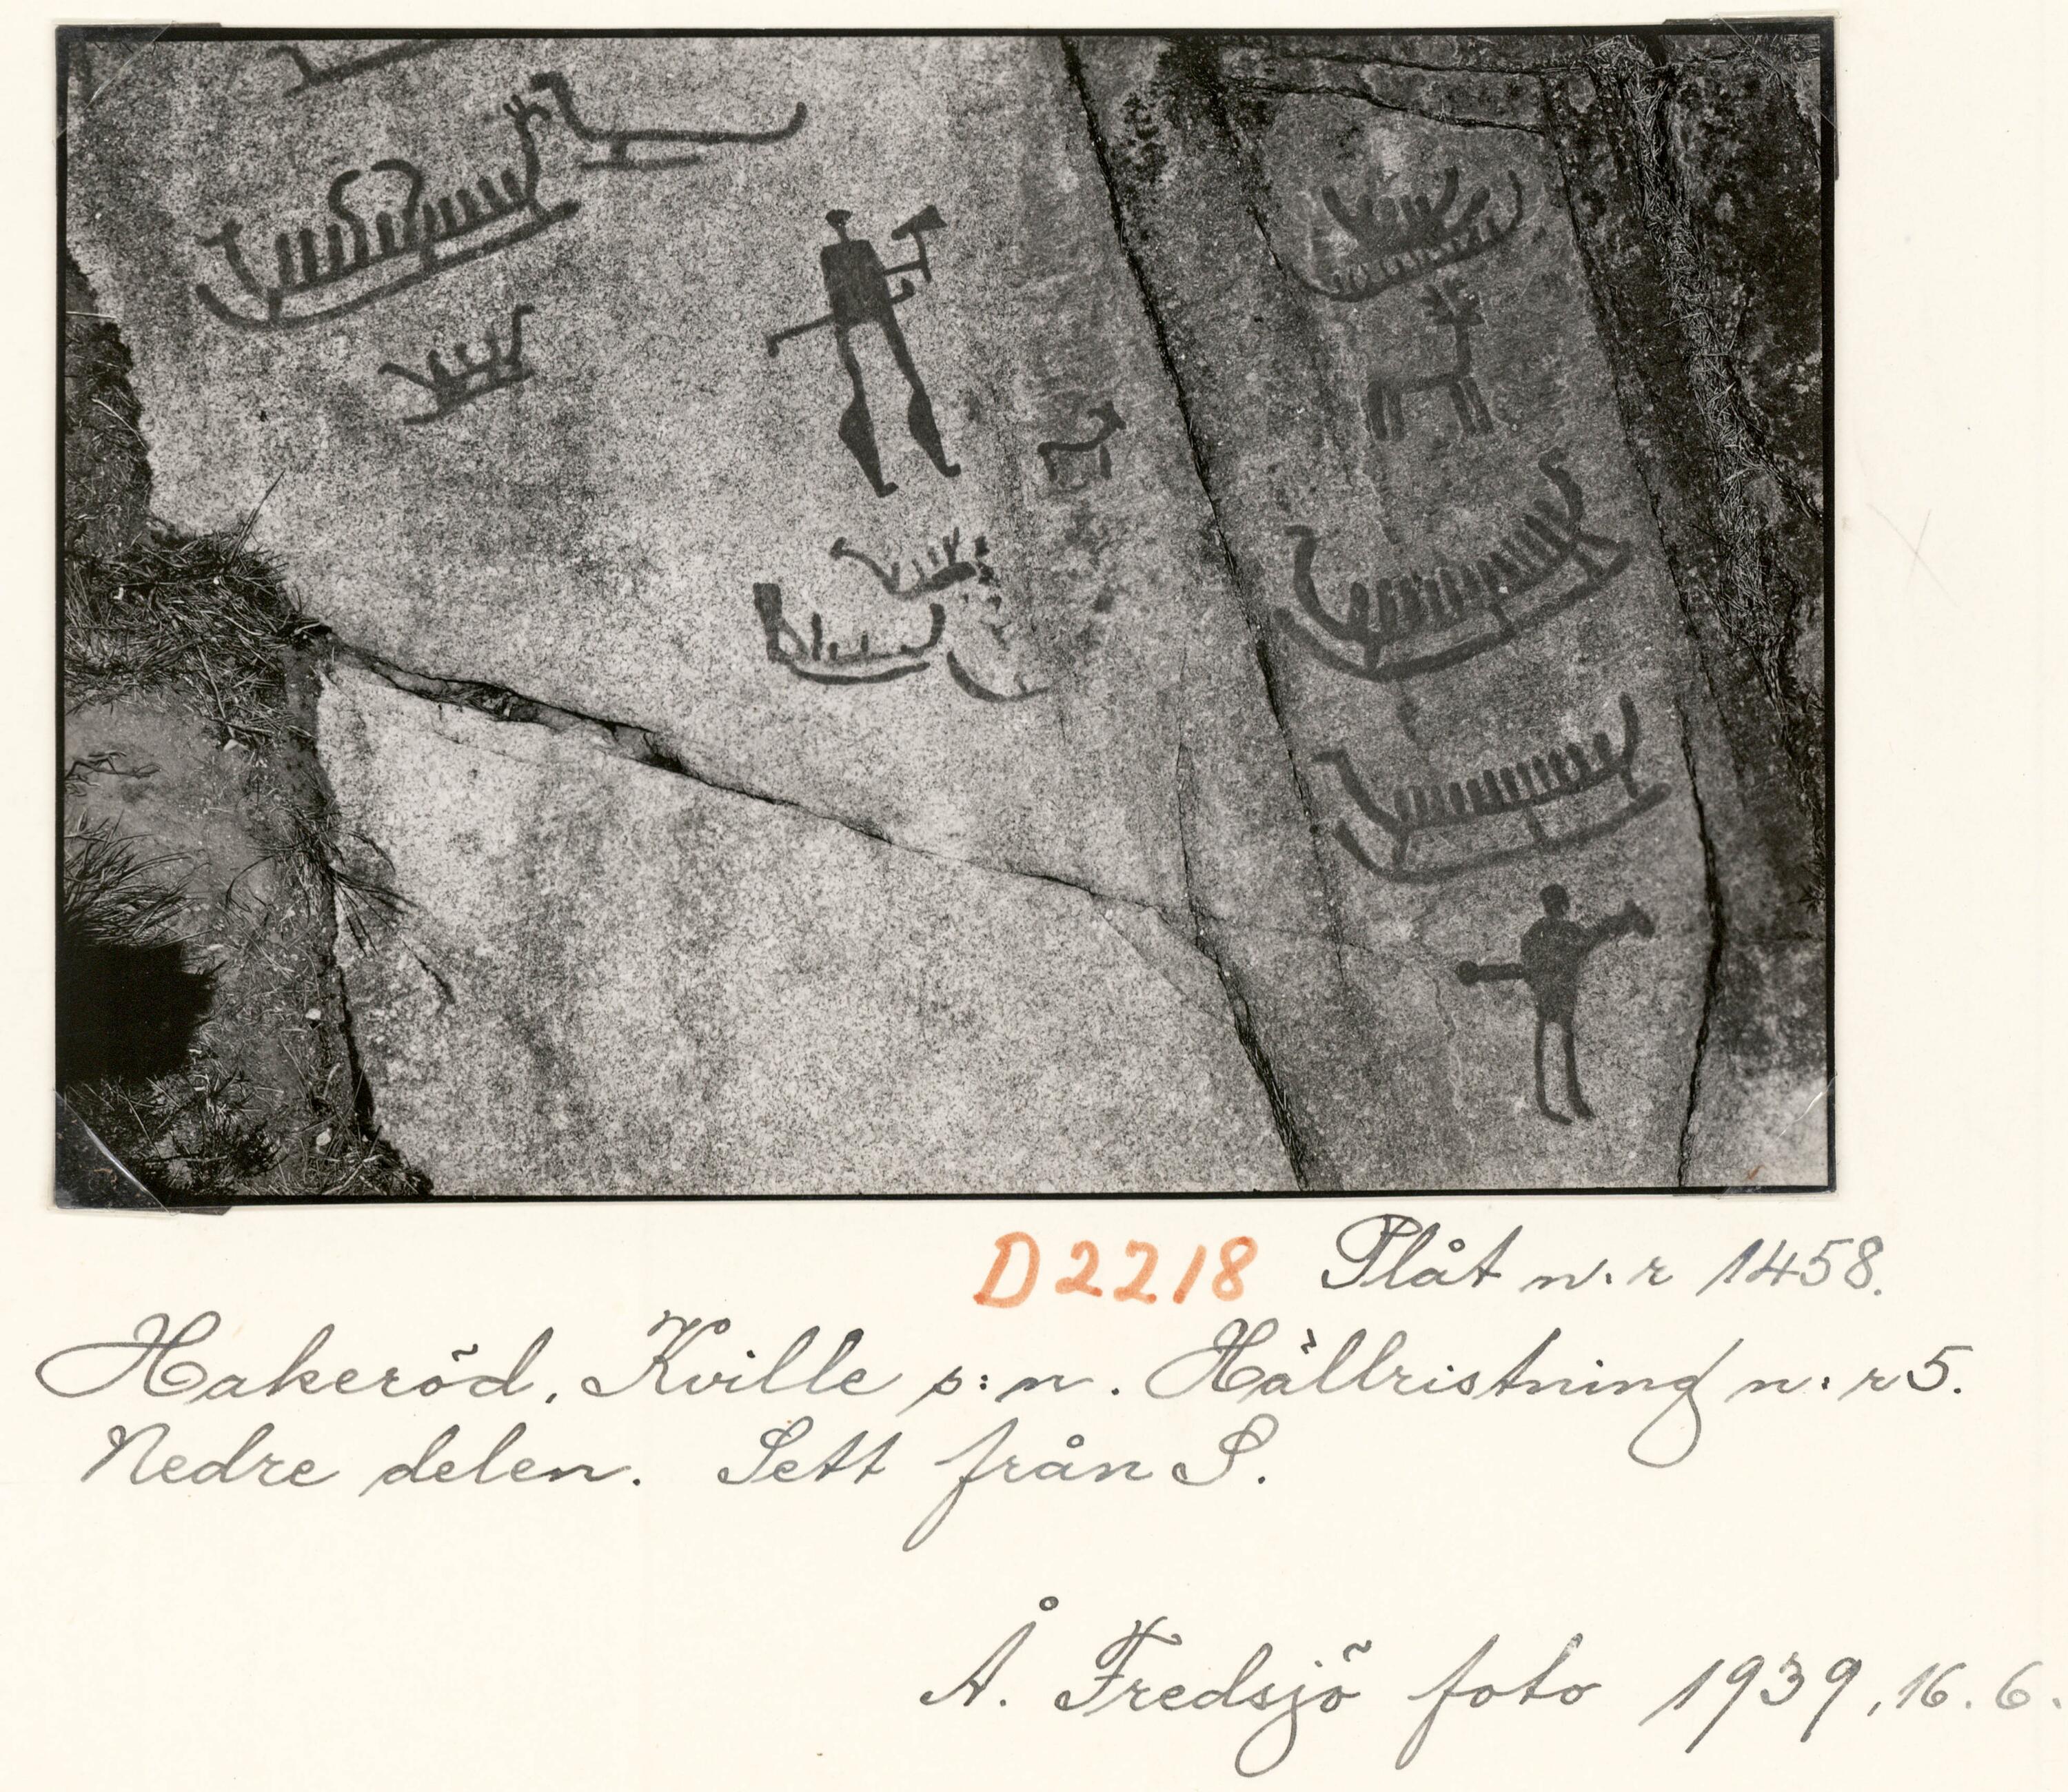 D2218 Plåt n:r 1458.
Hakeröd, Kville s:n. Hällristning n:r 5.
Nedre delen. Sett från S.
Å. Fredsjö foto 1939, 16. 6.